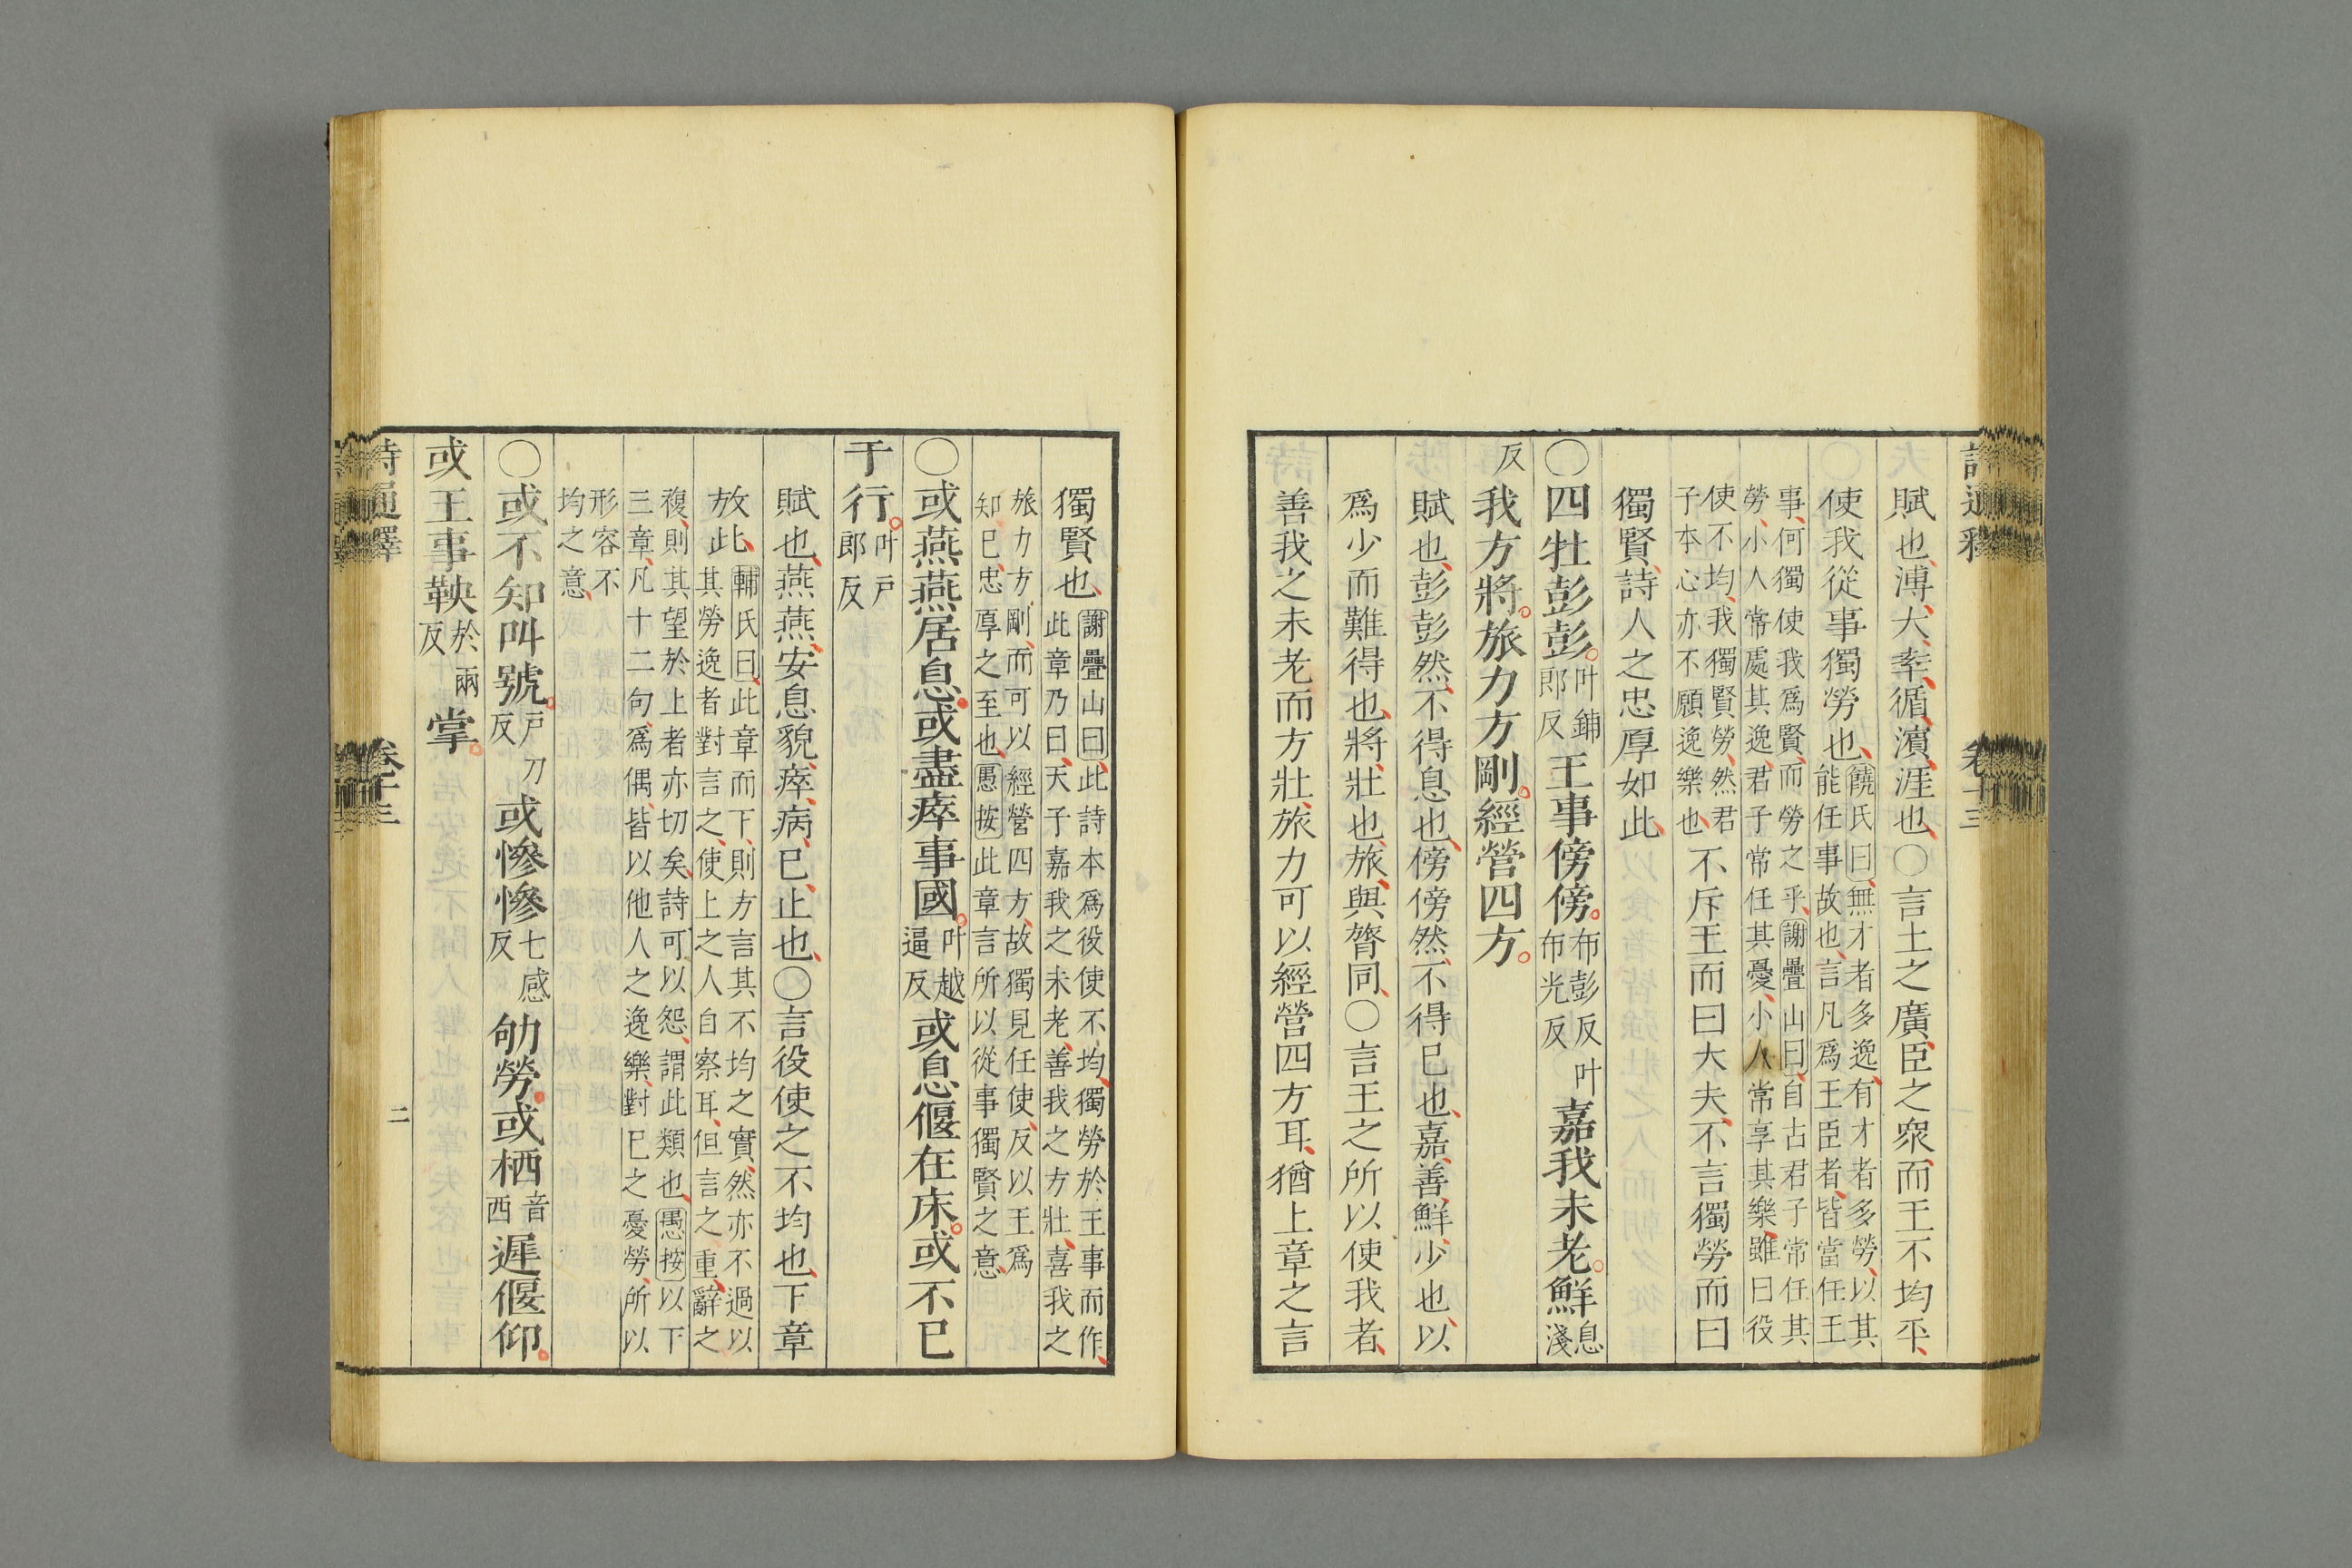 賦也溥大率循濱涯也○言土之廣臣之衆而王不均平
使我從事獨勞也饒氏曰無才者多逸有才者多勞以其
能任事故也言凡爲王臣者皆當任王
事何獨使我爲賢而勞之乎謝疊山曰自古君子常任其
勞小人常處其逸君子常任其憂小人常享其樂雖曰役
使不均我獨賢勞然君
子本心亦不願逸樂也不斥王而曰大夫不言獨勞而曰
獨賢詩人之忠厚如此
○四牡彭彭叶鋪郎反王事傍傍布彭反叶布光反嘉我未老鮮息淺
反我方將旅力方剛經營四方
賦也彭彭然不得息也傍傍然不得已也嘉善鮮少也以
爲少而難得也將壯也旅與膂同○言王之所以使我者
善我之未老而方壯旅力可以經營四方耳猶上章之言
獨賢也謝疊山曰此詩本爲役使不均獨勞於王事而作
此章乃曰天子嘉我之未老善我之方壯喜我之
旅力方剛而可以經營四方故獨見任使反以王爲
知己忠厚之至也愚按此章言所以從事獨賢之意
○或燕燕居息或盡瘁事國叶越逼反或息偃在床或不已
于行叶戶郎反
賦也燕燕安息貌瘁病已止也○言役使之不均也下章
放此輔氏曰此章而下則方言其不均之實然亦不過以
其勞逸者對言之使上之人自察耳但言之重辭之
複則其望於上者亦切矣詩可以怨謂此類也愚按以下
三章凡十二句爲偶皆以他人之逸樂對己之憂勞所以
形容不
均之意
○或不知叫號戶刀反或慘慘七感反劬勞或栖音西遲偃仰
或王事鞅於兩反掌
二